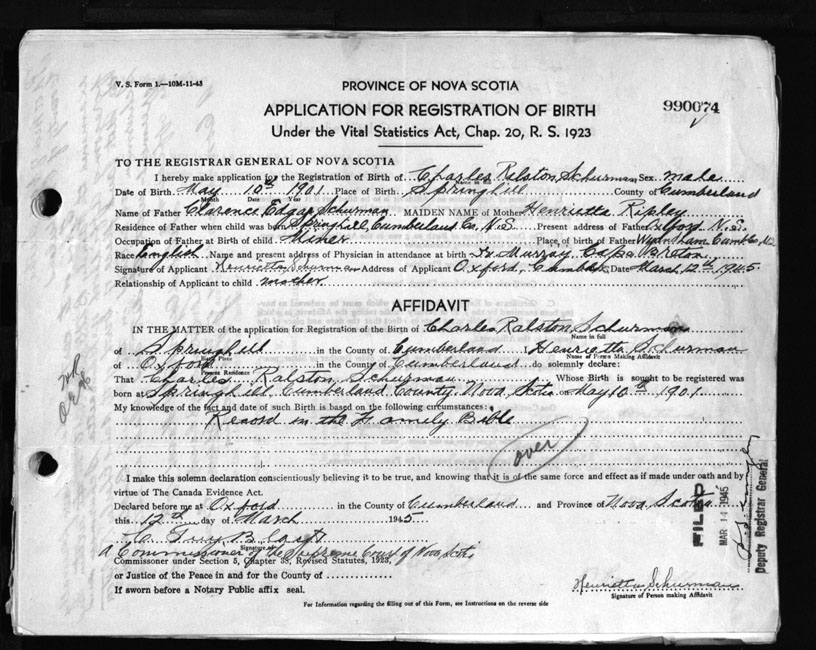 V. S. Form 1.—10M-11-43
PROVINCE OF NOVA SCOTIA
APPLICATION FOR REGISTRATION OF BIRTH
990074
Under the Vital Statistics Act, Chap. 20, R. S. 1923
TO THE REGISTRAR GENERAL OF NOVA SCOTIA
I hereby make application for the Registration of Birth of Charles Ralston Schurman Sex male
Name in full
Date of Birth May 10th 1901 Place of Birth Springhill County of Cumberland
Month Date Year
Name of Father Clarence Edgar Schurman MAIDEN NAME of Mother Henrietta Ripley
Residence of Father when child was born Springhill, Cumberland Co, N.S Present address of Father Oxford N.S.
Occupation of Father at Birth of child Miner Place of birth of Father
Race English Name and present address of Physician in attendance at birth Dr Murray Cape Breton
Signature of Applicant Henrietta Schurman Address of Applicant Oxford, Date March 12th 1945.
Relationship of Applicant to child mother
AFFIDAVIT
IN THE MATTER of the application for Registration of the Birth of Charles Ralston Schurman
Name in full
of Springhill in the County of Cumberland Henrietta Schurman
Birth Place Name of Person Making Affidavit
of Oxford in the County of Cumberland do solemnly declare:
Present Residence
That Charles Ralston Schurman Whose Birth is sought to be registered was
born at Springhill Cumberland County, Nova Scotia on May 10th 1901.
My knowledge of the fact and date of such Birth is based on the following circumstances:
Record in the Family Bible
over
I make this solemn declaration conscientiously believing it to be true, and knowing that it is of the same force and effect as if made under oath and by
virtue of The Canada Evidence Act.
Declared before me at Oxford in the County of Cumberland and Province of Nova Scotia
this 12th day of March 1945
Signature
A Commissioner of the Supreme Court of Nova Scotia
Commissioner under Section 5, Chapter 38, Revised Statutes, 1923,
or Justice of the Peace in and for the County of
If sworn before a Notary Public affix seal.
Henrietta Schurman
Signature of Person making Affidavit
For Information regarding the filling out of this Form, see Instructions on the reverse side
FILED
MAR 14 1945
Deputy Registrar General